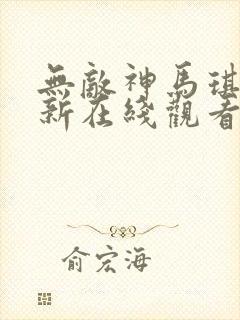 無敵神馬琪
新在綫觀看
俞宏海